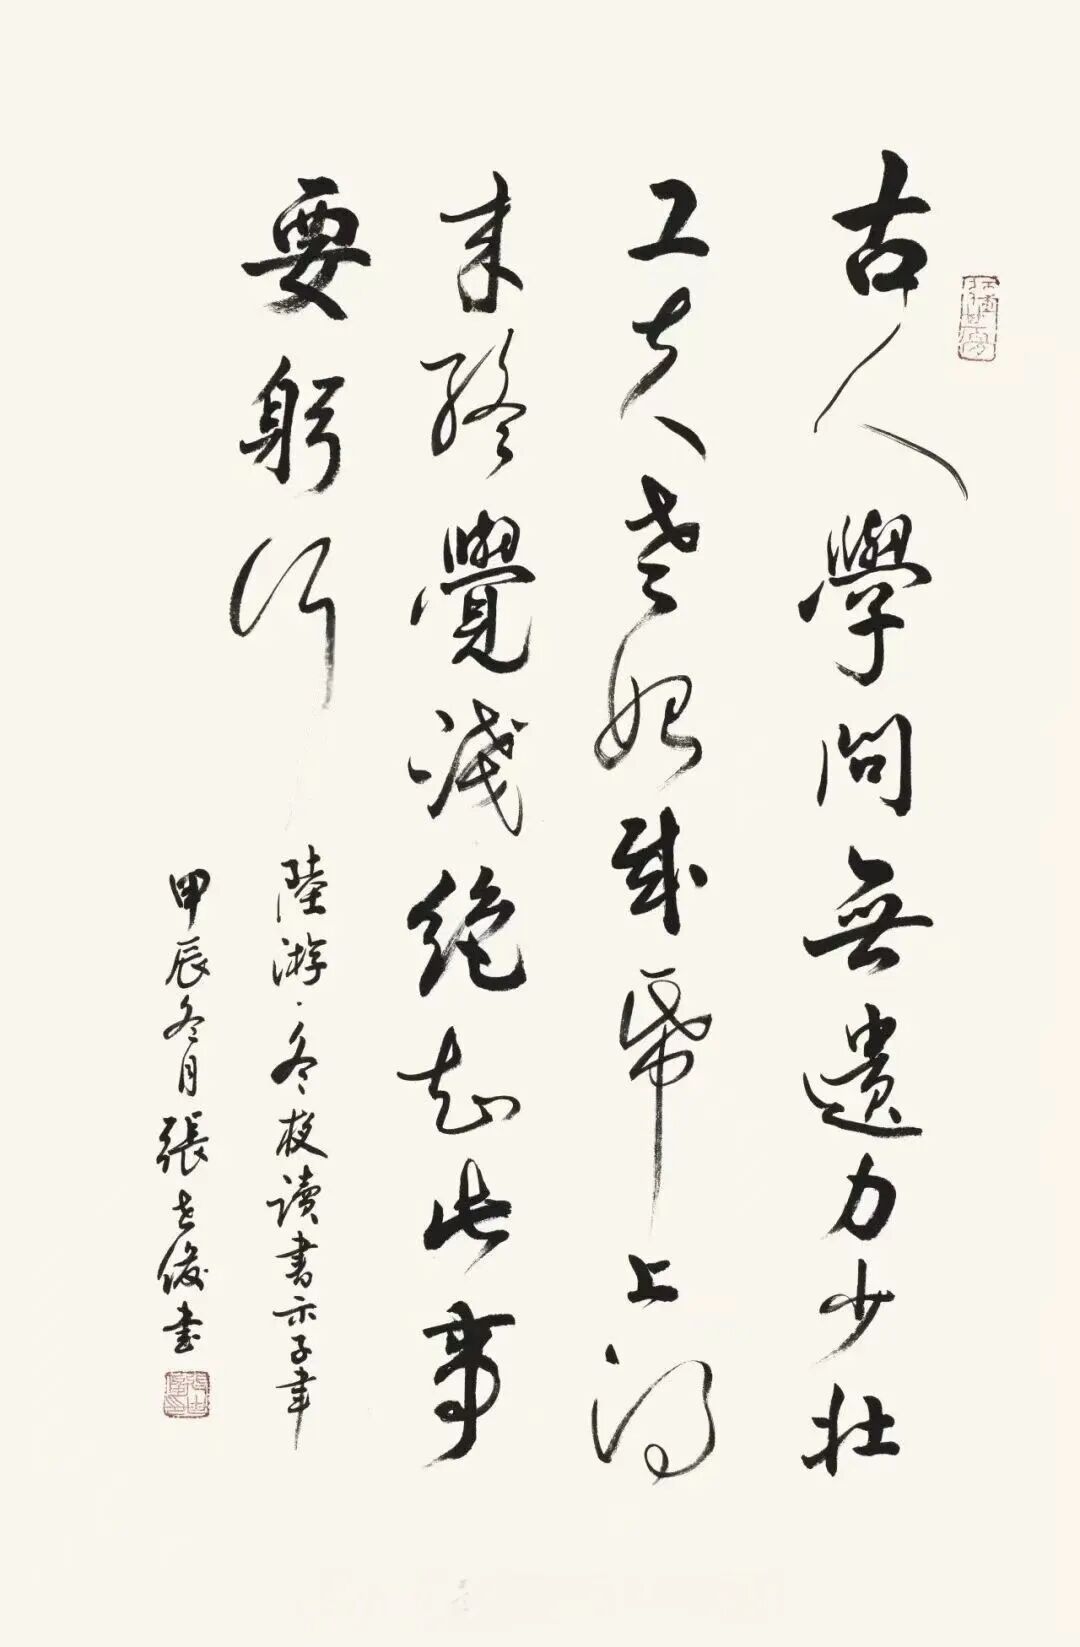 古人學問無遺力少壯
工夫老始成紙上得
来終覺淺絕知此事
要躬行
陸游·冬夜讀書示子聿
甲辰冬月張世俊書